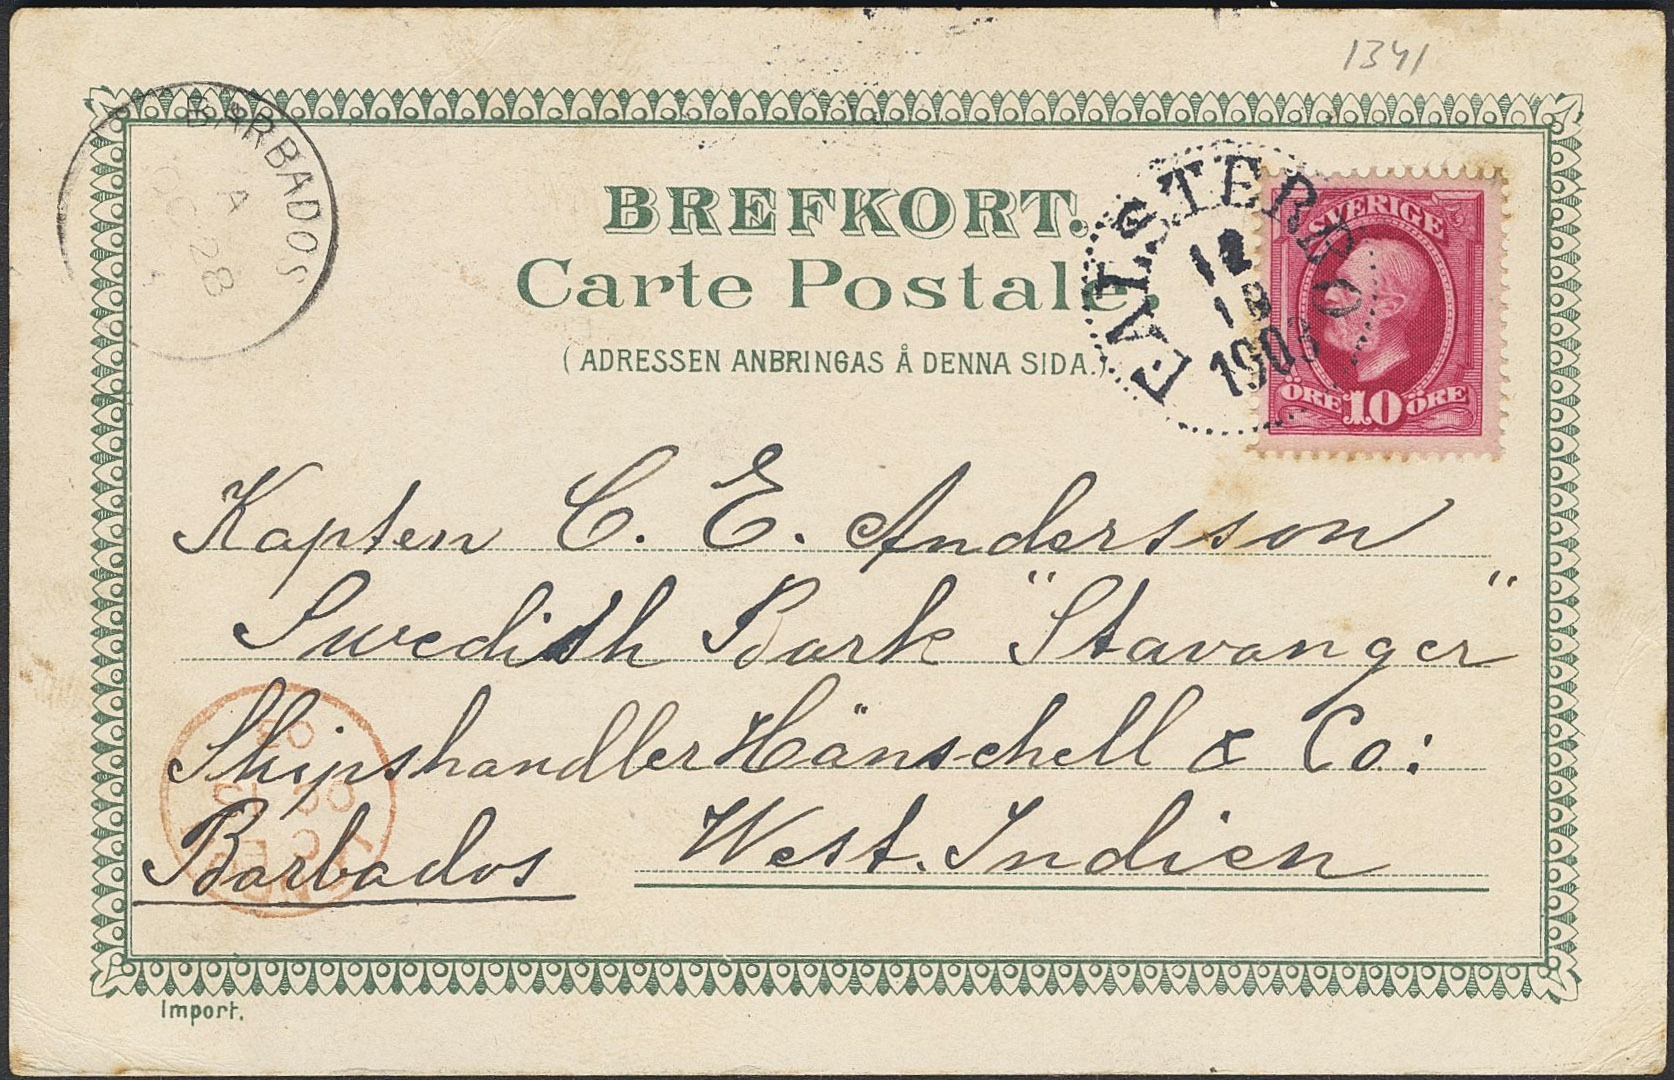 1341
BREFKORT.
Carte Postale.
(ADRESSEN ANBRINGAS Å DENNA SIDA.)
BARBADOS
A
OC 28
FALSTERBO
12
1903
SVERIGE
ÖRE 10 ÖRE
Kapten C. E. Andersson
Swedish Bark "Stavanger"
Shipshandler Hänschell & Co:
Barbados West. Indien
03
OC
Import.